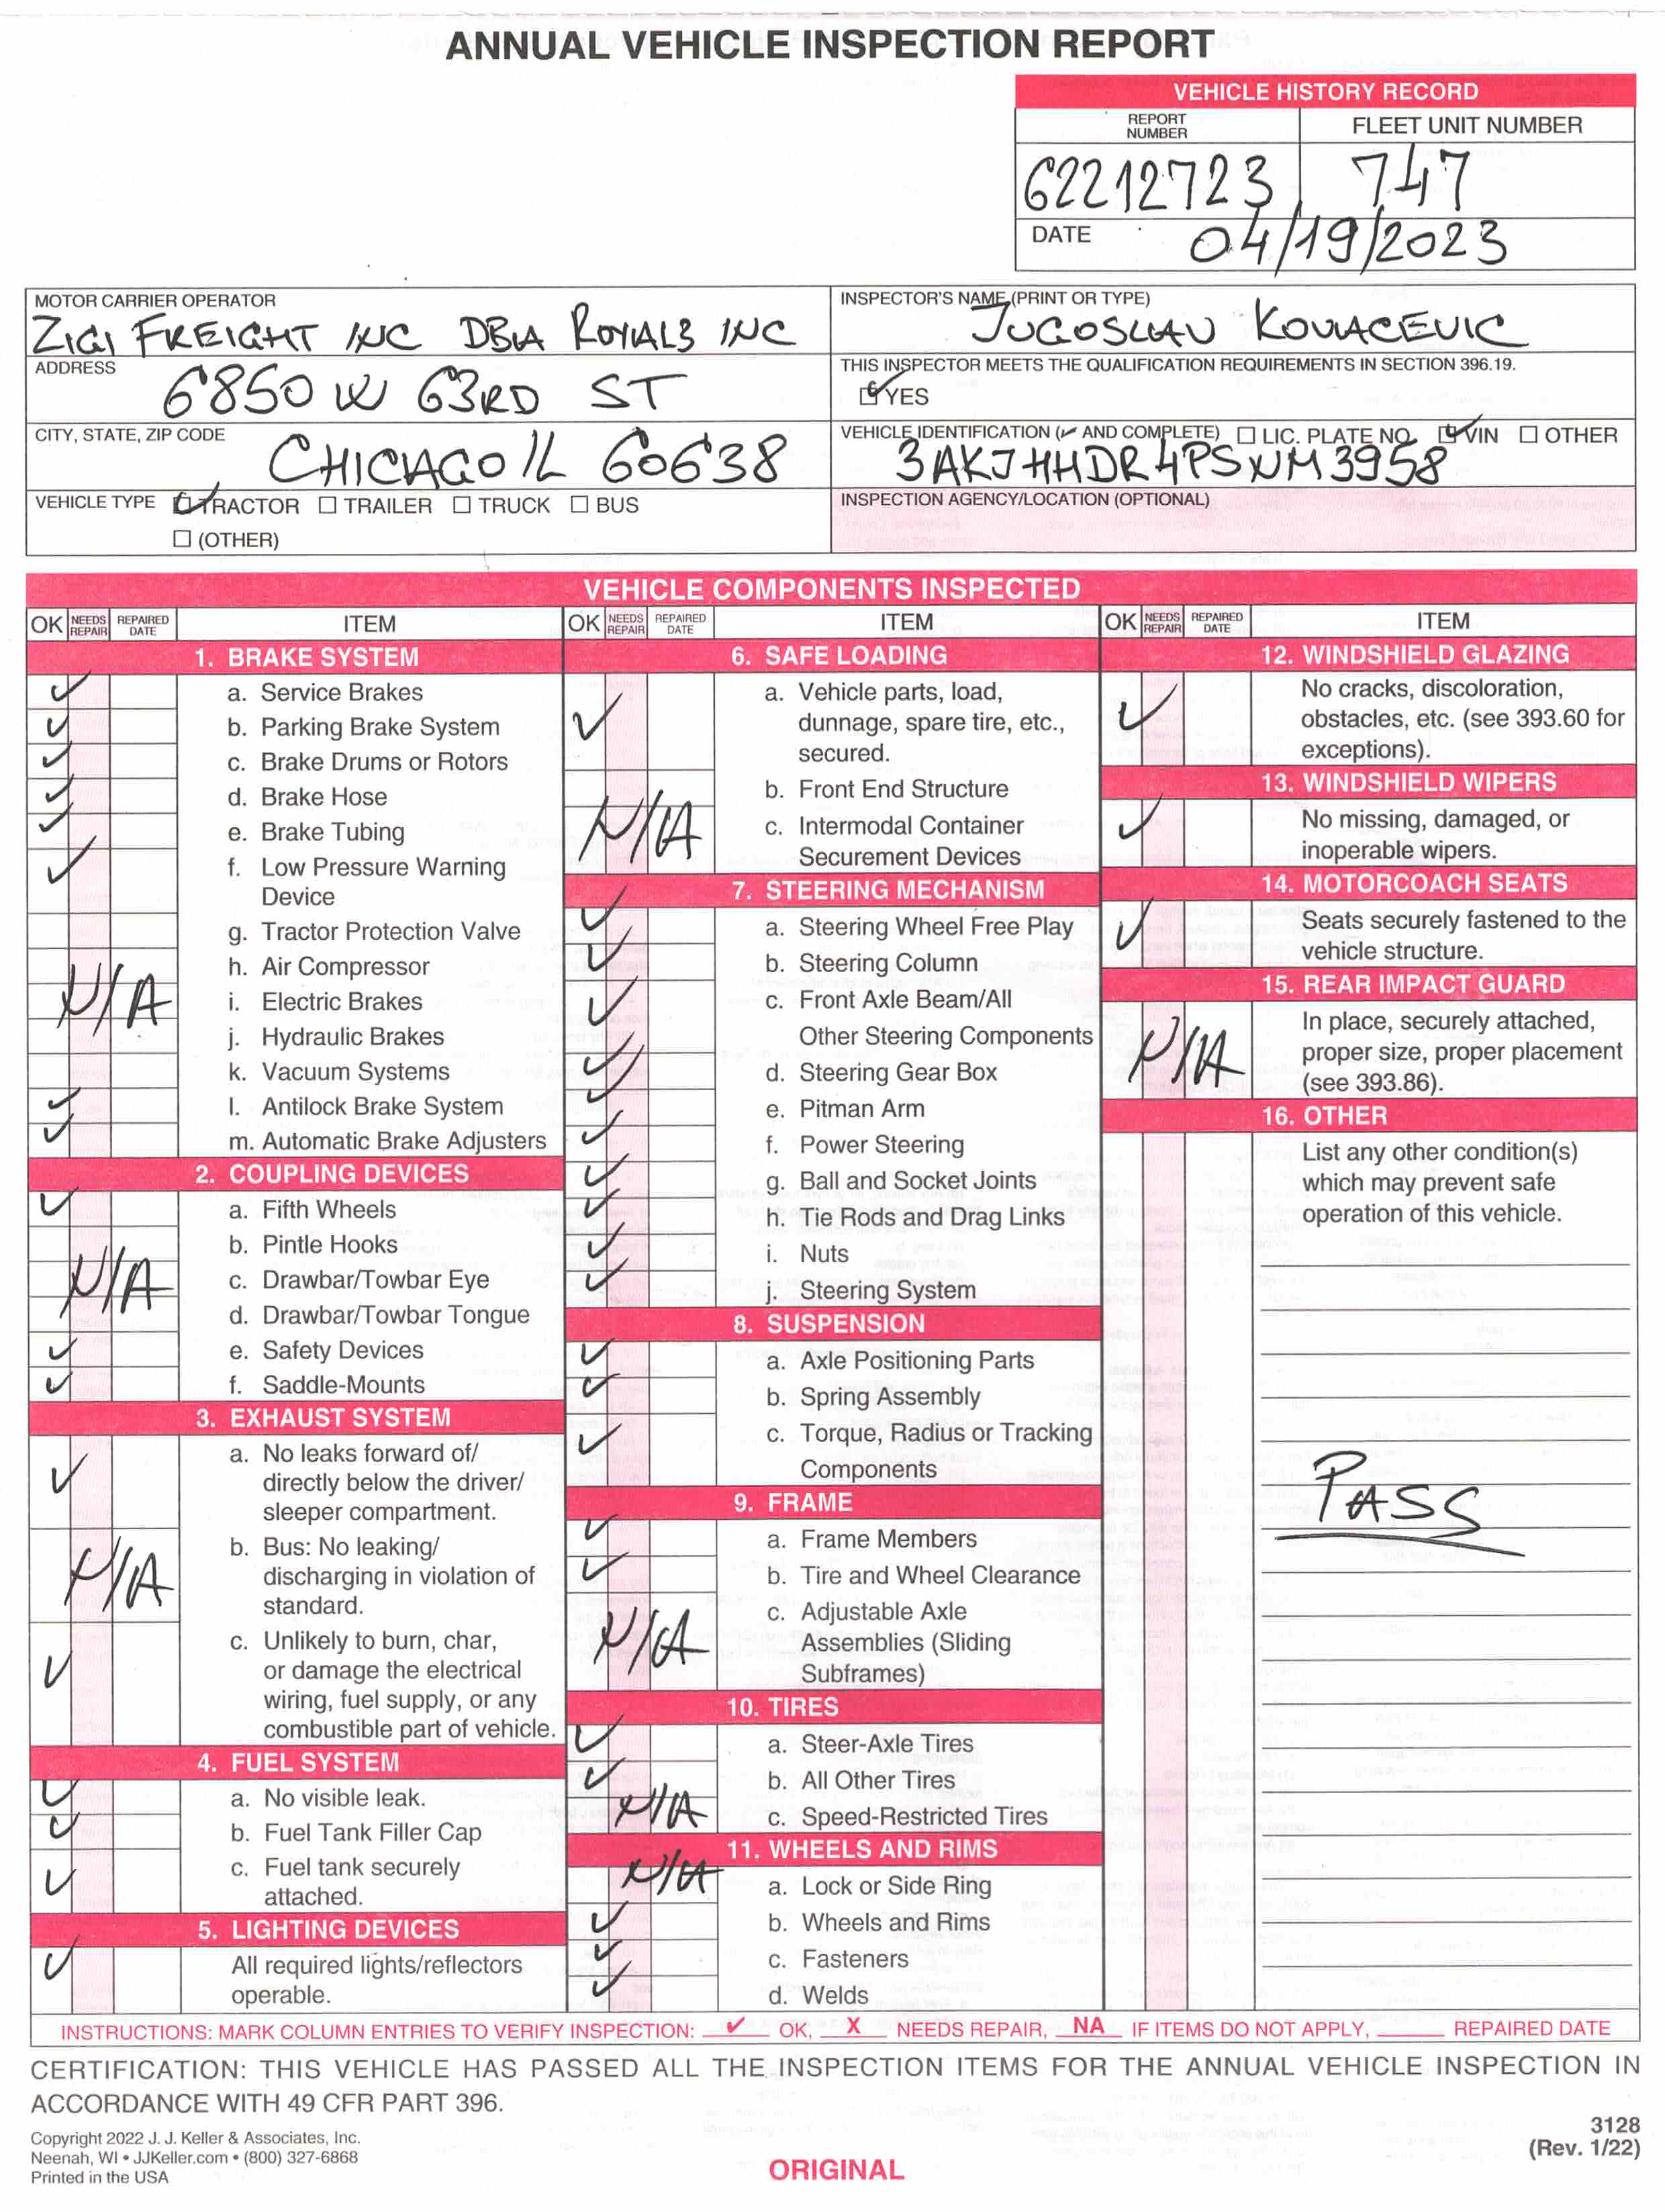 ANNUAL VEHICLE INSPECTION REPORT
VEHICLE HISTORY RECORD
REPORT NUMBER
FLEET UNIT NUMBER
62212723
747
DATE
04/19/2023
MOTOR CARRIER OPERATOR
ZIGI FREIGHT INC DBA ROYALS INC
INSPECTOR'S NAME (PRINT OR TYPE)
JUGOSLAV KOVACEVIC
ADDRESS
6850 W 63RD ST
THIS INSPECTOR MEETS THE QUALIFICATION REQUIREMENTS IN SECTION 396.19.
☑ YES
CITY, STATE, ZIP CODE
CHICAGO IL 60638
VEHICLE IDENTIFICATION (✓ AND COMPLETE) ☐ LIC. PLATE NO. ☑ VIN ☐ OTHER
3AKJHHDR4PSNM3958
VEHICLE TYPE ☑ TRACTOR ☐ TRAILER ☐ TRUCK ☐ BUS
☐ (OTHER)
INSPECTION AGENCY/LOCATION (OPTIONAL)
VEHICLE COMPONENTS INSPECTED
OK NEEDS REPAIR REPAIRED DATE ITEM
1. BRAKE SYSTEM
✓ a. Service Brakes
✓ b. Parking Brake System
✓ c. Brake Drums or Rotors
✓ d. Brake Hose
✓ e. Brake Tubing
✓ f. Low Pressure Warning
Device
g. Tractor Protection Valve
h. Air Compressor
N/A i. Electric Brakes
j. Hydraulic Brakes
k. Vacuum Systems
✓ l. Antilock Brake System
✓ m. Automatic Brake Adjusters
2. COUPLING DEVICES
✓ a. Fifth Wheels
b. Pintle Hooks
N/A c. Drawbar/Towbar Eye
d. Drawbar/Towbar Tongue
✓ e. Safety Devices
✓ f. Saddle-Mounts
3. EXHAUST SYSTEM
✓ a. No leaks forward of/
directly below the driver/
sleeper compartment.
N/A b. Bus: No leaking/
discharging in violation of
standard.
✓ c. Unlikely to burn, char,
or damage the electrical
wiring, fuel supply, or any
combustible part of vehicle.
4. FUEL SYSTEM
✓ a. No visible leak.
✓ b. Fuel Tank Filler Cap
✓ c. Fuel tank securely
attached.
5. LIGHTING DEVICES
✓ All required lights/reflectors
operable.
OK NEEDS REPAIR REPAIRED DATE ITEM
6. SAFE LOADING
✓ a. Vehicle parts, load,
dunnage, spare tire, etc.,
secured.
b. Front End Structure
N/A c. Intermodal Container
Securement Devices
7. STEERING MECHANISM
✓ a. Steering Wheel Free Play
✓ b. Steering Column
✓ c. Front Axle Beam/All
Other Steering Components
✓ d. Steering Gear Box
✓ e. Pitman Arm
✓ f. Power Steering
✓ g. Ball and Socket Joints
✓ h. Tie Rods and Drag Links
✓ i. Nuts
✓ j. Steering System
8. SUSPENSION
✓ a. Axle Positioning Parts
✓ b. Spring Assembly
✓ c. Torque, Radius or Tracking
Components
9. FRAME
✓ a. Frame Members
✓ b. Tire and Wheel Clearance
N/A c. Adjustable Axle
Assemblies (Sliding
Subframes)
10. TIRES
✓ a. Steer-Axle Tires
✓ b. All Other Tires
N/A c. Speed-Restricted Tires
11. WHEELS AND RIMS
N/A a. Lock or Side Ring
✓ b. Wheels and Rims
✓ c. Fasteners
✓ d. Welds
OK NEEDS REPAIR REPAIRED DATE ITEM
12. WINDSHIELD GLAZING
✓ No cracks, discoloration,
obstacles, etc. (see 393.60 for
exceptions).
13. WINDSHIELD WIPERS
✓ No missing, damaged, or
inoperable wipers.
14. MOTORCOACH SEATS
✓ Seats securely fastened to the
vehicle structure.
15. REAR IMPACT GUARD
N/A In place, securely attached,
proper size, proper placement
(see 393.86).
16. OTHER
List any other condition(s)
which may prevent safe
operation of this vehicle.
PASS
INSTRUCTIONS: MARK COLUMN ENTRIES TO VERIFY INSPECTION: ✓ OK, X NEEDS REPAIR, NA IF ITEMS DO NOT APPLY, ____ REPAIRED DATE
CERTIFICATION: THIS VEHICLE HAS PASSED ALL THE INSPECTION ITEMS FOR THE ANNUAL VEHICLE INSPECTION IN
ACCORDANCE WITH 49 CFR PART 396.
Copyright 2022 J. J. Keller & Associates, Inc.
Neenah, WI • JJKeller.com • (800) 327-6868
Printed in the USA
ORIGINAL
3128
(Rev. 1/22)